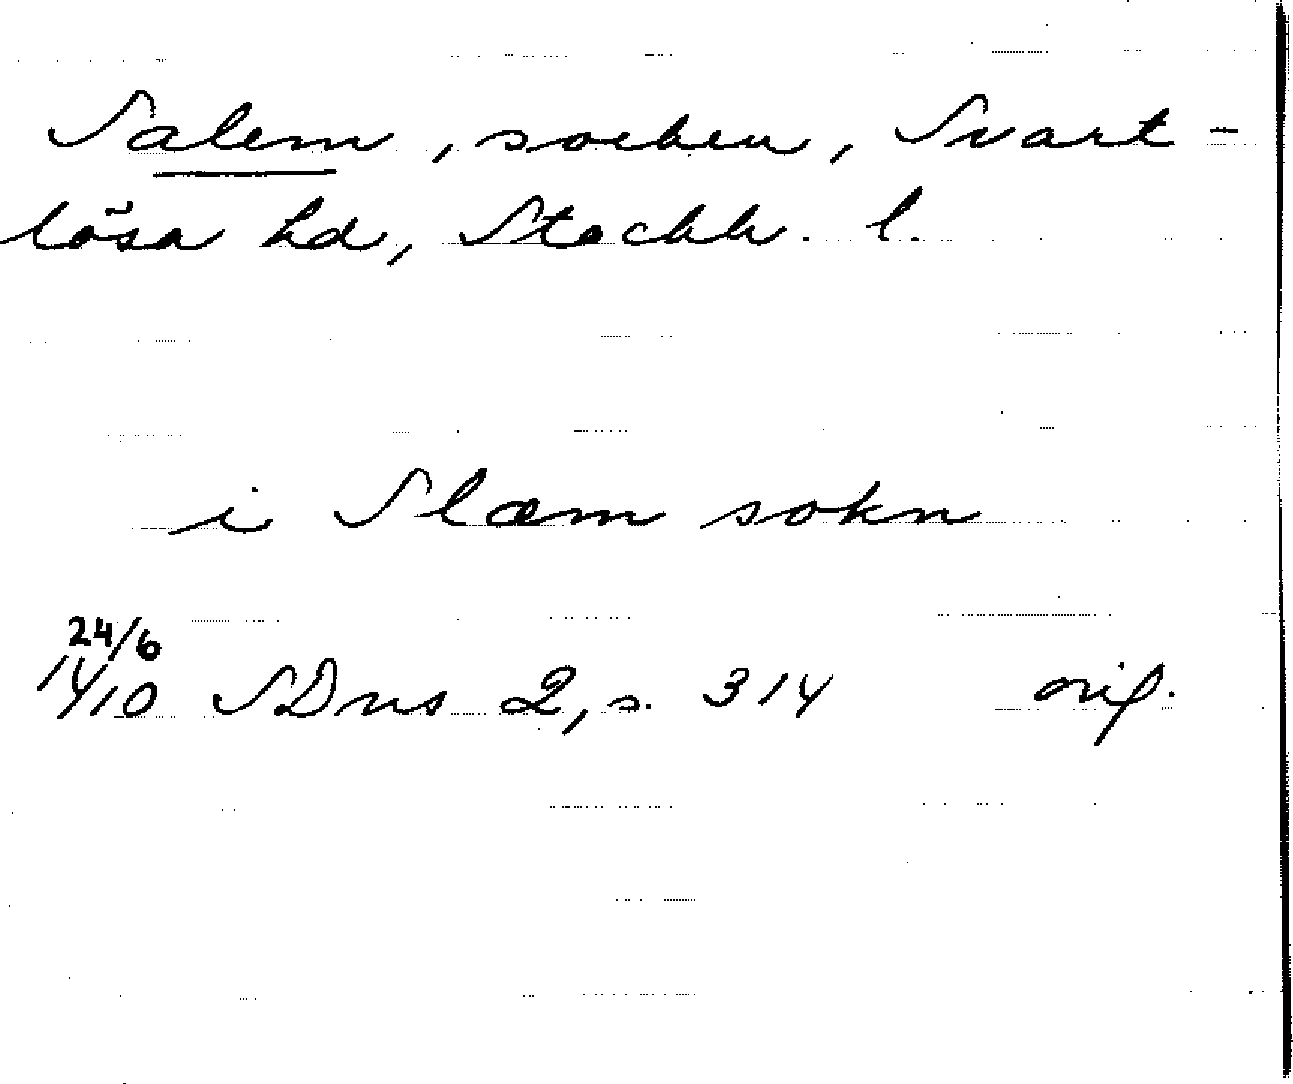 Salem, socken, Svart-
lösa hd, Stockh. l.
i Slæm sokn
24/6
14/10 SDns 2, s. 314 orig.